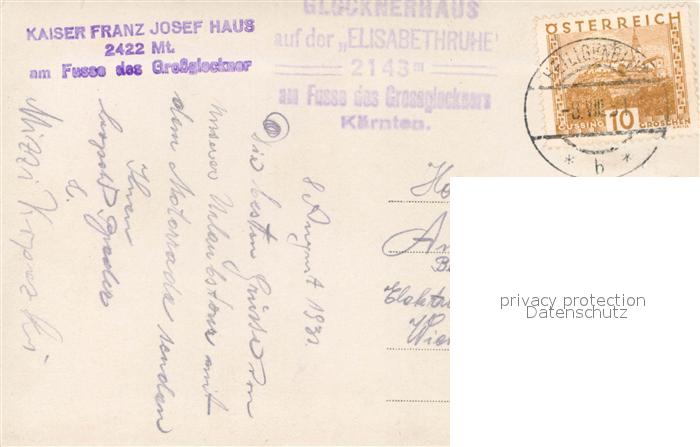 KAISER FRANZ JOSEF HAUS
2422 Mt.
am Fusse des Großglockner
GLOCKNERHAUS
auf der „ELISABETHRUHE"
2143 m
am Fusse des Grossglockners
Kärnten.
ÖSTERREICH
GÜSSING 10 GROSCHEN
* b *
8 August 1931
Die besten Grüsse von
unserer Urlaubstour mit
dem Motorrade senden
Ihnen
Leopold
Mizzi
Elektr
Wien
privacy protection
Datenschutz